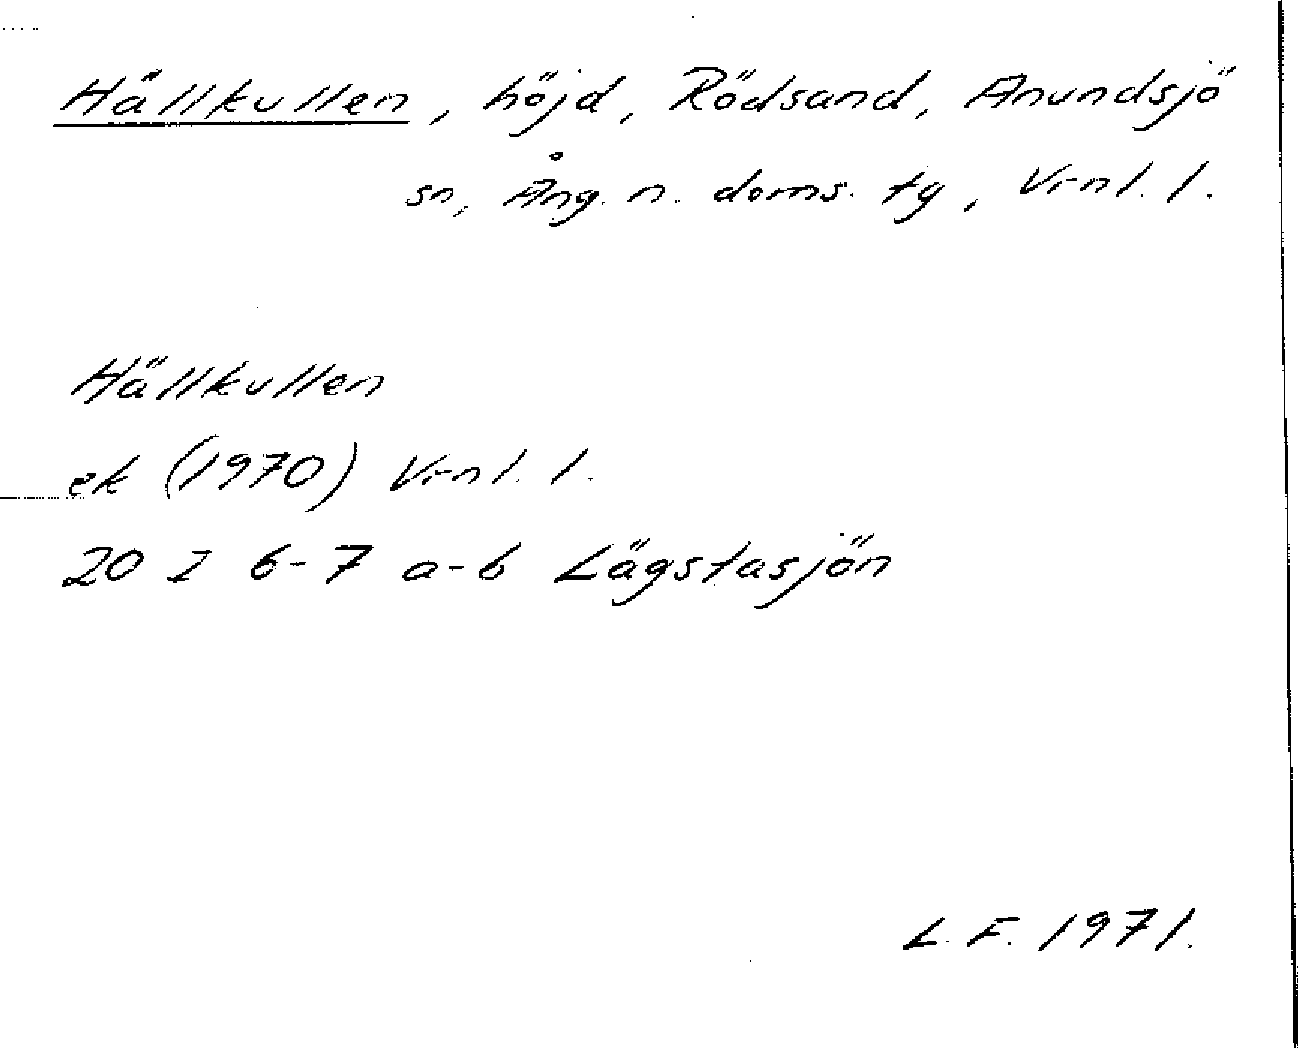 Hällkullen, höjd, Rödsand, Anundsjö
sn, Ång. n. doms. tg, Vrnl. l.
Hällkullen
ek (1970) Vrnl. l.
20 I 6-7 a-b Lägstasjön
L. F. 1971.